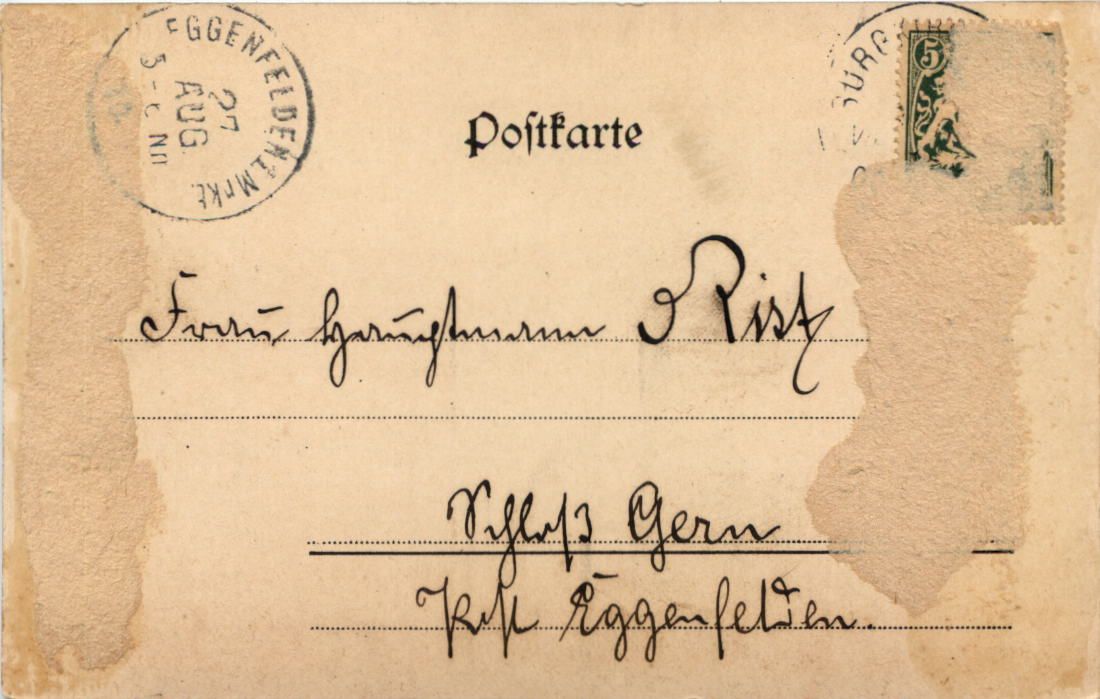 EGGENFELDEN Mrkt.
27
AUG.
5
Poſtkarte
Frau Hauptmann Rist
Schloß Gern
Post Eggenfelden.